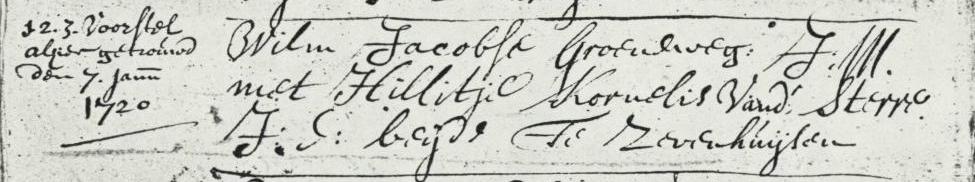 1. 2. 3. Voorstel
alhier getrouwd
den 7. Jann
1720
Wilm Jacobse Groeneweg: J: M.
met Hillitje Kornelis Vand: Sterre.
J: D: beyde Te Zevenhuysen